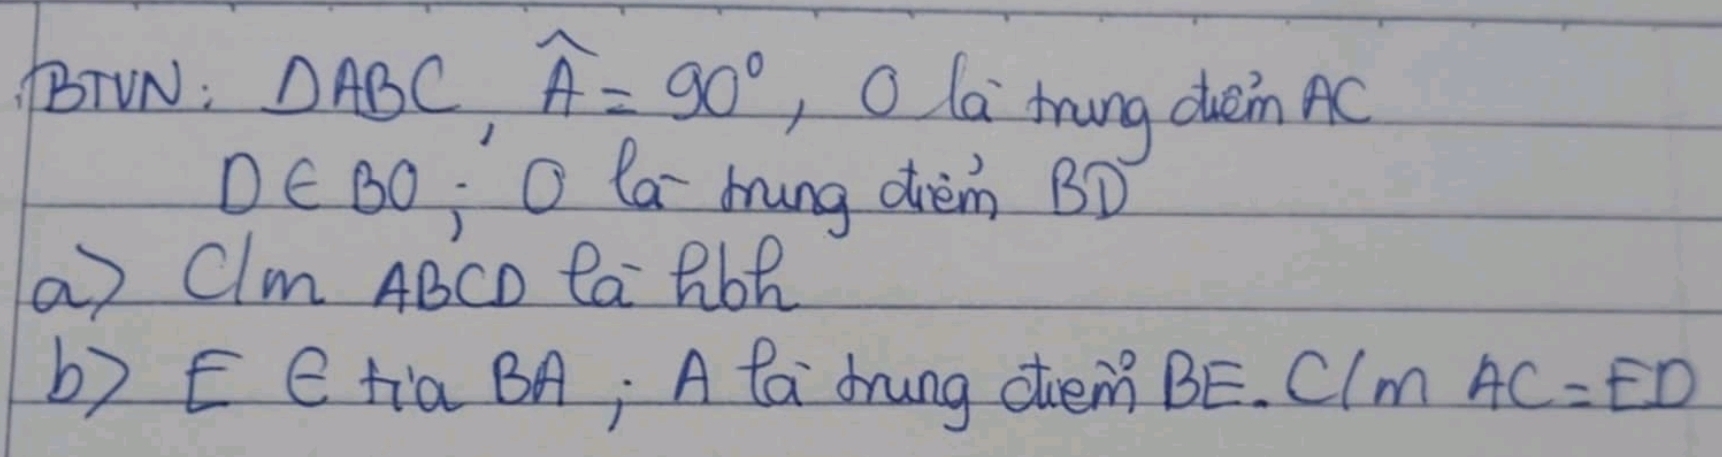 BTVN: ΔABC, Â = 90°, O là trung điểm AC
D ∈ BO; O là trung điểm BD
a) C/m ABCD là hbh
b) E ∈ tia BA; A là trung điểm BE. C/m AC = ED